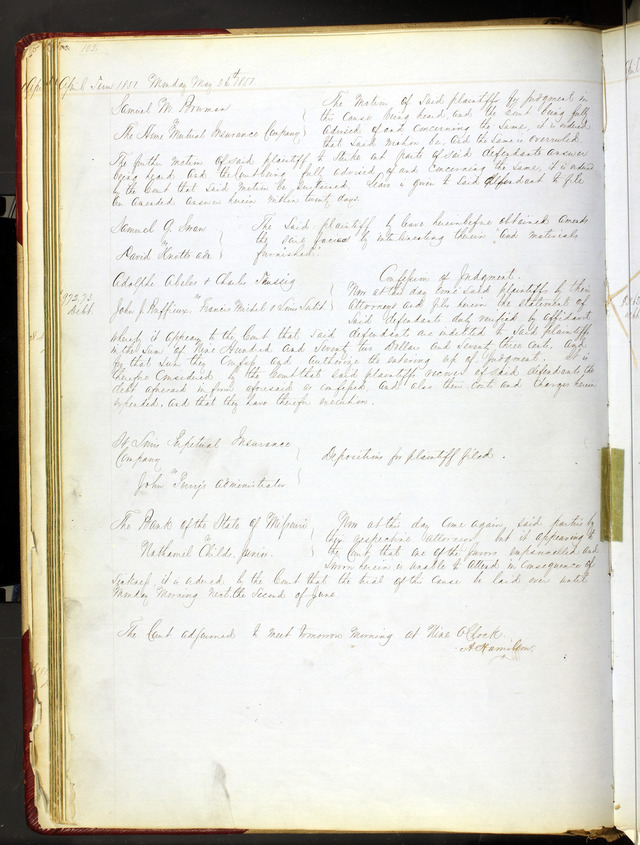 April Term 1851 Monday May 26th 1851
Samuel M. Bowman
vs
The Home Mutual Insurance Company
The Motion of said plaintiff for judgment in
this cause being heard and the Court being fully
advised of and concerning the same, it is ordered
that said motion be, and the same is overruled.
The further motion of said plaintiff to strike out parts of said defendants answer
being heard and the Court being fully advised of and concerning the same, it is ordered
by the Court that said motion be sustained. Leave is given to said defendant to file
an amended answer herein within twenty days.
Samuel G. Swan
vs
David Knott
The said plaintiff by leave hereinbefore obtained amends
by interlineating therein "and materials
furnished."
Adolphe Abeles & Charles Taussig
vs
John J. Raffieux, Francis Michel & Louis
$972.73
Debt
Confession of Judgment.
Now at this day come said plaintiffs by their
Attorney and file herein the statement of
said defendants duly verified by affidavit
whereby it appears to the Court that said defendants are indebted to said plaintiffs
in the sum of Nine Hundred and Seventy two Dollars and Seventy three cents, and
for that sum they confess and authorize the entering up of judgment. It is
therefore considered by the Court that said plaintiffs recover of said defendants the
debt aforesaid in form aforesaid as confessed and also their costs and charges herein
expended, and that they have therefor execution.
St Louis Perpetual Insurance
Company
vs
John Administrator
Depositions for plaintiff filed.
The Bank of the State of Missouri
vs
Nathaniel Childs, Junior.
Now at this day come again said parties by
their respective attorneys, but it appearing to
the Court that one of the jurors empannelled and
sworn herein is unable to attend in consequence of
sickness, it is ordered by the Court that the trial of the cause be laid over until
Monday Morning next, the second of June
The Court adjourned to meet tomorrow morning at Nine O'Clock.
A Hamilton